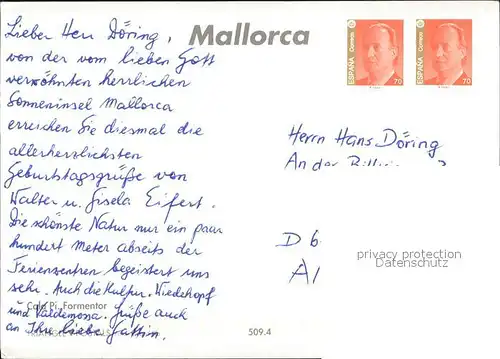 Mallorca
Lieber Herr Döring,
von der vom lieben Gott
verwöhnten herrlichen
Sonneninsel Mallorca
erreichen Sie diesmal die
allerherzlichsten
Geburtstagsgrüße von
Walter u. Gisela Eifert.
Die schönste Natur nur ein paar
hundert Meter abseits der
Ferienzentren begeistert uns
sehr. Auch die Kultur.
und Valdemossa. Grüße auch
an Ihre liebe Gattin.
Cala Pi. Formentor
509.4
ESPAÑA Correos 70
ESPAÑA Correos 70
Herrn Hans Döring
An der
D 6
privacy protection
Datenschutz